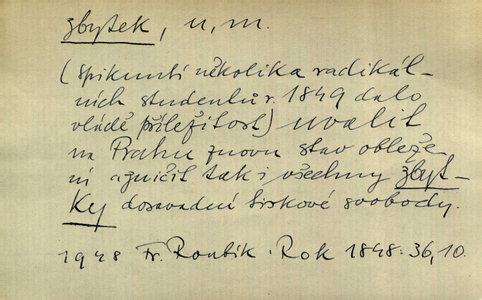 zbytek, u, m.
(spiknutí několika radikál-
ních studentů r. 1849 dalo
vládě příležitost) uvalit
na Prahu znovu stav obleže
ní a zničit tak i všechny zbyt-
ky dosavadní tiskové svobody.
1948 Fr. Roubík. Rok 1848: 36,10.